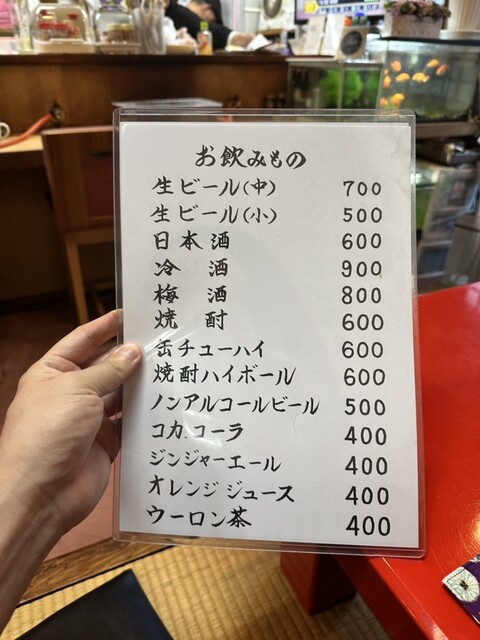 お飲みもの
生ビール(中) 700
生ビール(小) 500
日本酒 600
冷酒 900
梅酒 800
焼酎 600
缶チューハイ 600
焼酎ハイボール 600
ノンアルコールビール 500
コカ・コーラ 400
ジンジャーエール 400
オレンジジュース 400
ウーロン茶 400